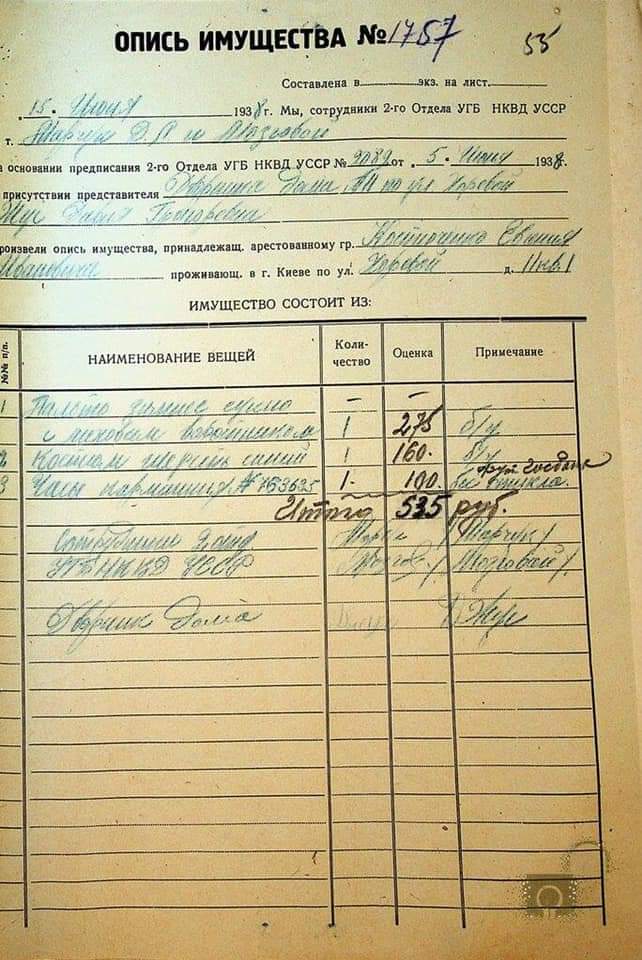 ОПИСЬ ИМУЩЕСТВА № 1757
55
Составлена в экз. на лист.
15. Июня 1938 г. Мы, сотрудники 2-го Отдела УГБ НКВД УССР
т. Д. Л. и Мозговой
а основании предписания 2-го Отдела УГБ НКВД УССР № 2082 от 5. Июня 1938 г.
присутствии представителя Дворника Дома № 11 по ул Хоревой
Жук
роизвели опись имущества, принадлежащ. арестованному гр. Костюченко Евгения
Ивановича проживающ. в г. Киеве по ул. Хоревой д. 11 кв 1
ИМУЩЕСТВО СОСТОИТ ИЗ:
№№ п/п. НАИМЕНОВАНИЕ ВЕЩЕЙ Коли-чество Оценка Примечание
1 Пальто зимнее сукно — —
с меховым воротником 1 275 б/у
2 Костюм шерсть синий 1 160. б/у
3 Часы карманныя № 753625 1- 100. без стекла.
Итого 535 руб.
Сотрудники 2 отд
УГБ НКВД УССР /Мозговой/
Дворник Дома Жук